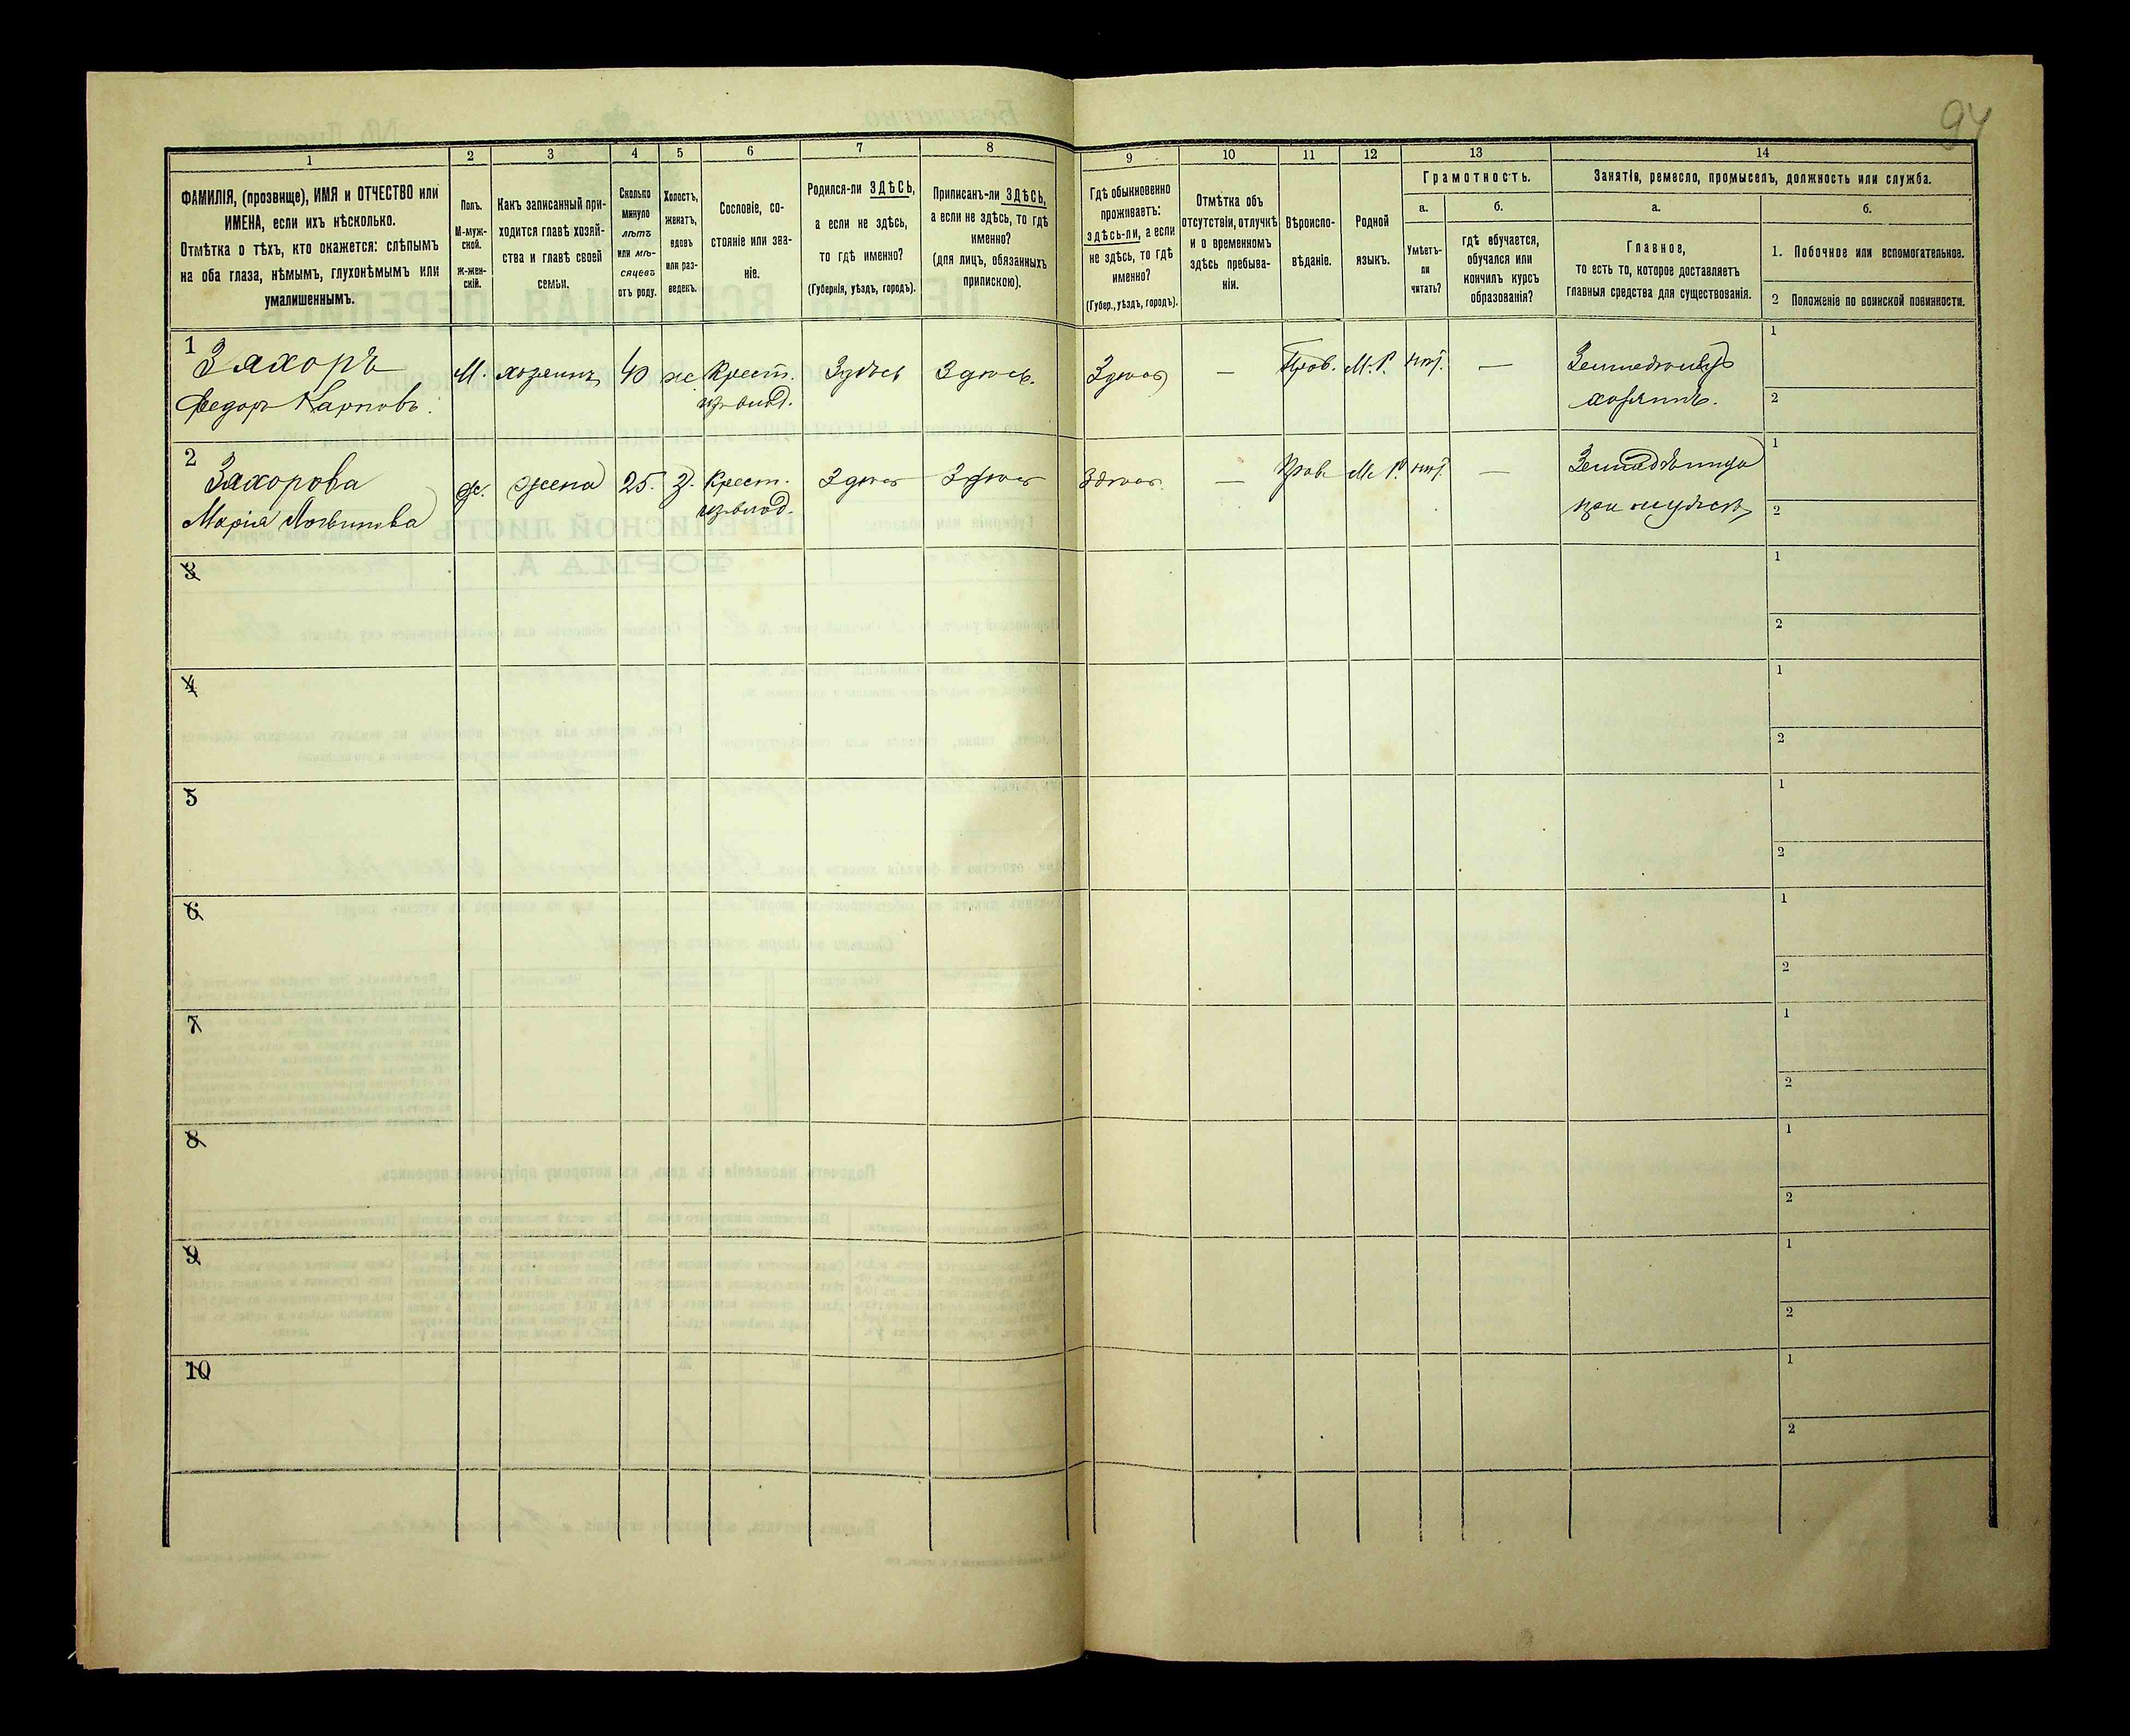 94
1 2 3 4 5 6 7 8 9 10 11 12 13 14
ФАМИЛІЯ, (прозвище), ИМЯ и ОТЧЕСТВО или
ИМЕНА, если ихъ нѣсколько.
Отмѣтка о тѣхъ, кто окажется: слѣпымъ
на оба глаза, нѣмымъ, глухонѣмымъ или
умалишеннымъ.
Полъ.
М-муж-
ской.
Ж-жен-
скій.
Какъ записанный при-
ходится главѣ хозяй-
ства и главѣ своей
семьи.
Сколько
минуло
лѣтъ
или мѣ-
сяцевъ
отъ роду.
Холостъ,
женатъ,
вдовъ
или раз-
веденъ.
Сословіе, со-
стояніе или зва-
ніе.
Родился-ли ЗДѢСЬ,
а если не здѣсь,
то гдѣ именно?
(Губернія, уѣздъ, городъ).
Приписанъ-ли ЗДѢСЬ,
а если не здѣсь, то гдѣ
именно?
(для лицъ, обязанныхъ
припискою).
Гдѣ обыкновенно
проживаетъ:
здѣсь-ли, а если
не здѣсь, то гдѣ
именно?
(Губер., уѣздъ, городъ).
Отмѣтка объ
отсутствіи, отлучкѣ
и о временномъ
здѣсь пребыва-
ніи.
Вѣроиспо-
вѣданіе.
Родной
языкъ.
Грамотность.
а.
Умѣетъ-
ли
читать?
б.
гдѣ обучается,
обучался или
кончилъ курсъ
образованія?
Занятія, ремесло, промыселъ, должность или служба.
а.
Главное,
то есть то, которое доставляетъ
главныя средства для существованія.
б.
1. Побочное или вспомогательное.
2 Положеніе по воинской повинности.
1 Захоръ М. хозяинъ 40 ж Крест. Здѣсь Здѣсь. Здѣсь — Прав. М. Р. нѣт. — Земледѣлецъ 1
Федоръ Карповъ. из влад. хозяинъ. 2
2 Захорова ж. жена 25. З. Крест. Здѣсь Здѣсь Здѣсь — Прав. М. Р. нѣт. — Земледѣлица 1
Марія Логвинова из влад. при мужѣ 2
3 1
2
4 1
2
5 1
2
6 1
2
7 1
2
8 1
2
9 1
2
10 1
2